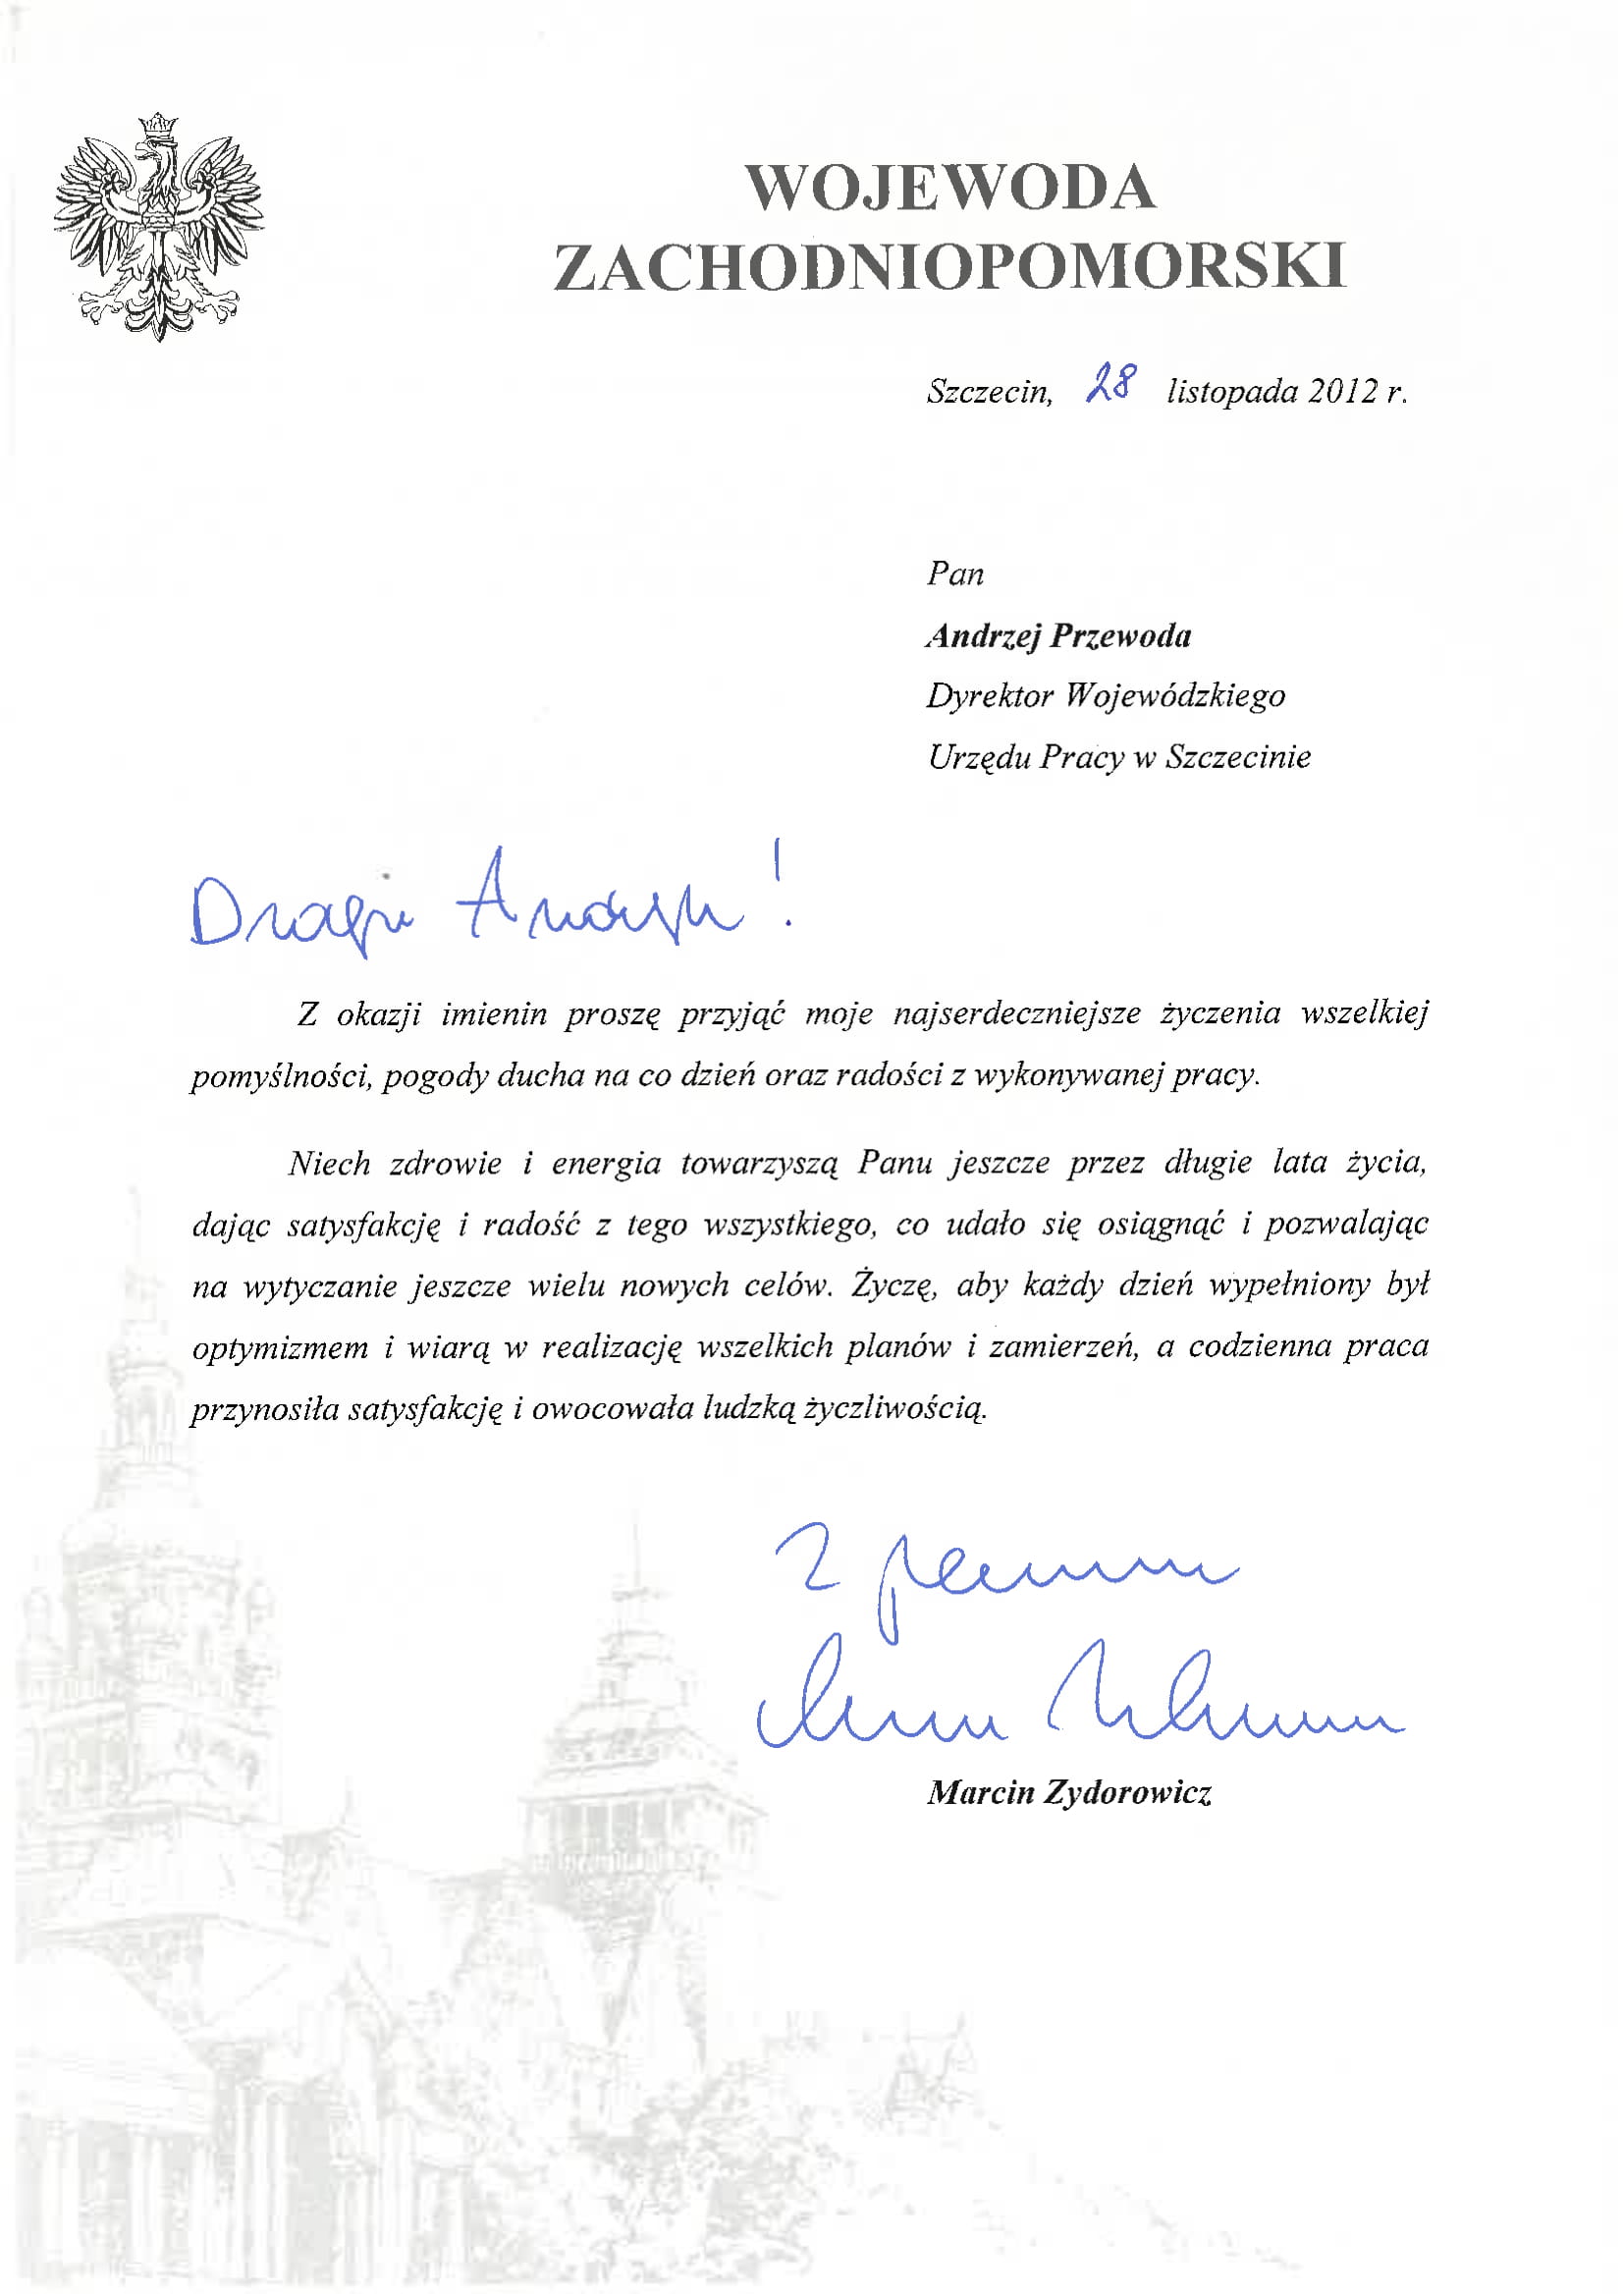 WOJEWODA
ZACHODNIOPOMORSKI
Szczecin, 28 listopada 2012 r.
Pan
Andrzej Przewoda
Dyrektor Wojewódzkiego
Urzędu Pracy w Szczecinie
Drogi Andrzeju!
Z okazji imienin proszę przyjąć moje najserdeczniejsze życzenia wszelkiej
pomyślności, pogody ducha na co dzień oraz radości z wykonywanej pracy.
Niech zdrowie i energia towarzyszą Panu jeszcze przez długie lata życia,
dając satysfakcję i radość z tego wszystkiego, co udało się osiągnąć i pozwalając
na wytyczanie jeszcze wielu nowych celów. Życzę, aby każdy dzień wypełniony był
optymizmem i wiarą w realizację wszelkich planów i zamierzeń, a codzienna praca
przynosiła satysfakcję i owocowała ludzką życzliwością.
Z
Marcin Zydorowicz